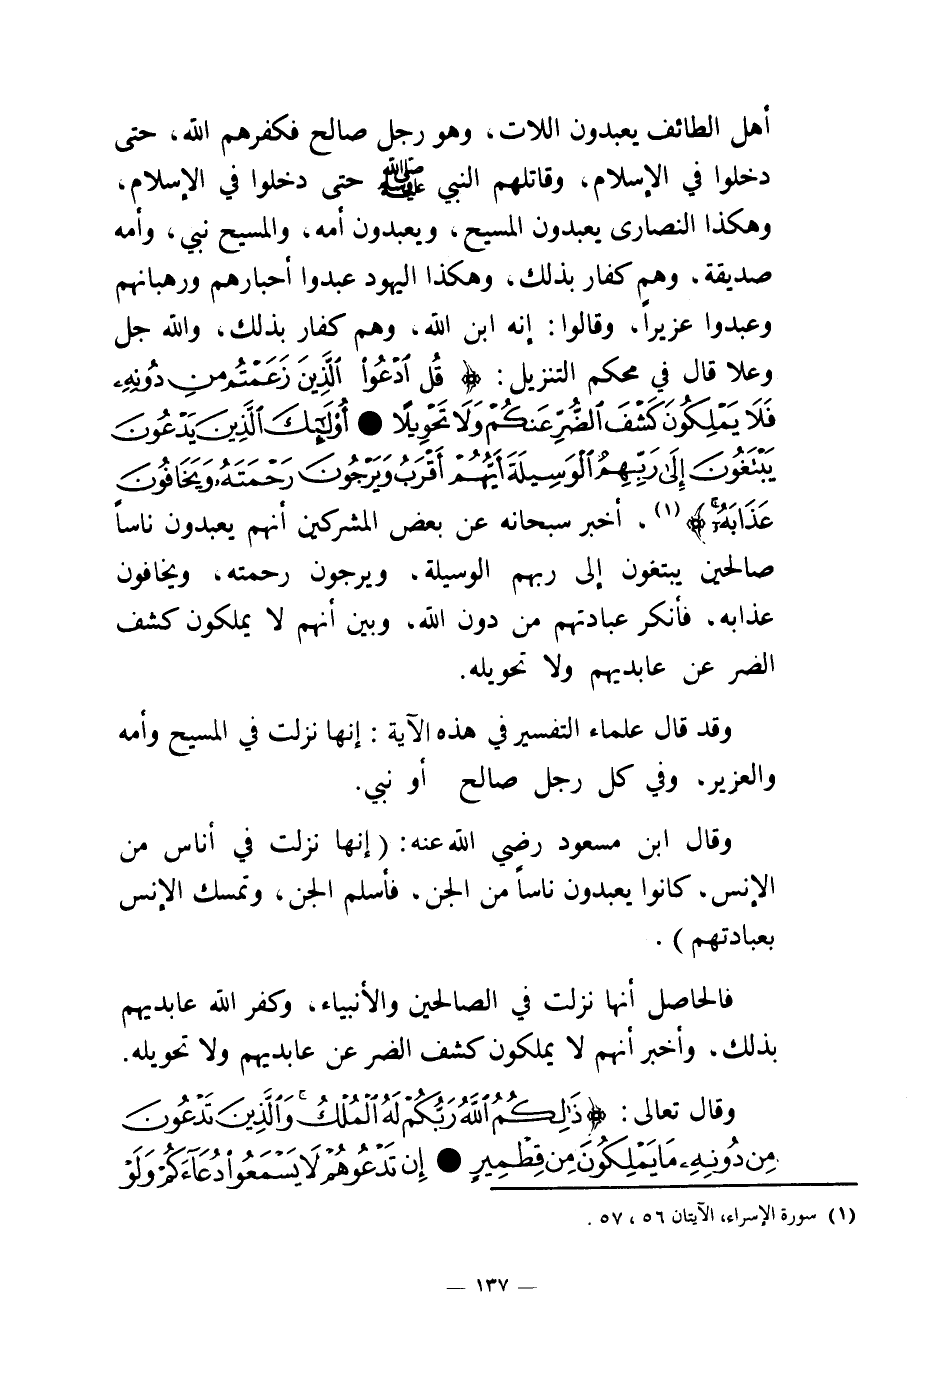 أهل الطائف يعبدون اللات، وهو رجل صالح فكفرهم الله، حتى
دخلوا في الإسلام، وقاتلهم النبي ﷺ حتى دخلوا في الإسلام،
وهكذا النصارى يعبدون المسيح، ويعبدون أمه، والمسيح نبي، وأمه
صديقة. وهم كفار بذلك، وهكذا اليهود عبدوا أحبارهم ورهبانهم
وعبدوا عزيراً، وقالوا: إنه ابن الله، وهم كفار بذلك، والله جل
وعلا قال في محكم التنزيل: ﴿ قُلِ ٱدْعُوا۟ ٱلَّذِينَ زَعَمْتُم مِّن دُونِهِۦ
فَلَا يَمْلِكُونَ كَشْفَ ٱلضُّرِّ عَنكُمْ وَلَا تَحْوِيلًا ● أُو۟لَـٰٓئِكَ ٱلَّذِينَ يَدْعُونَ
يَبْتَغُونَ إِلَىٰ رَبِّهِمُ ٱلْوَسِيلَةَ أَيُّهُمْ أَقْرَبُ وَيَرْجُونَ رَحْمَتَهُۥ وَيَخَافُونَ
عَذَابَهُۥٓ ۚ ﴾ (١). أخبر سبحانه عن بعض المشركين أنهم يعبدون ناساً
صالحين يبتغون إلى ربهم الوسيلة. ويرجون رحمته، ويخافون
عذابه. فأنكر عبادتهم من دون الله. وبين أنهم لا يملكون كشف
الضر عن عابديهم ولا تحويله.
وقد قال علماء التفسير في هذه الآية : إنها نزلت في المسيح وأمه
والعزير. وفي كل رجل صالح أو نبي.
وقال ابن مسعود رضي الله عنه: ( إنها نزلت في أناس من
الإنس. كانوا يعبدون ناساً من الجن. فأسلم الجن، وتمسك الإنس
بعبادتهم ) .
فالحاصل أنها نزلت في الصالحين والأنبياء، وكفر الله عابديهم
بذلك. وأخبر أنهم لا يملكون كشف الضر عن عابديهم ولا تحويله.
وقال تعالى: ﴿ ذَٰلِكُمُ ٱللَّهُ رَبُّكُمْ لَهُ ٱلْمُلْكُ ۚ وَٱلَّذِينَ تَدْعُونَ
مِن دُونِهِۦ مَا يَمْلِكُونَ مِن قِطْمِيرٍ ● إِن تَدْعُوهُمْ لَا يَسْمَعُوا۟ دُعَآءَكُمْ وَلَوْ
(١) سورة الإسراء، الآيتان ٥٦ ، ٥٧ .
— ١٣٧ —